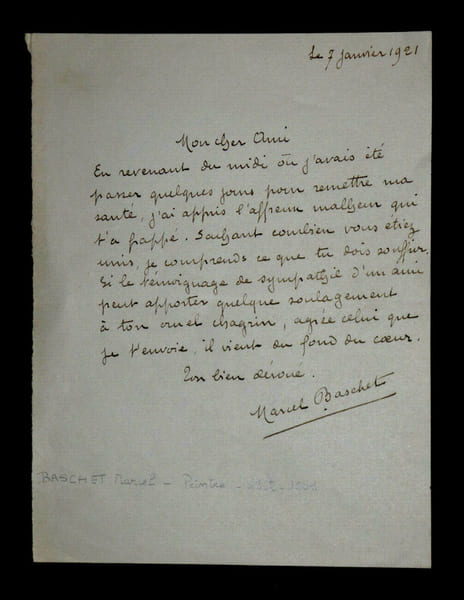 Le 7 Janvier 1921
Mon cher Ami
En revenant du midi où j'avais été
passer quelques jours pour remettre ma
santé, j'ai appris l'affreux malheur qui
t'a frappé. Sachant combien vous étiez
unis, je comprends ce que tu dois souffrir.
Si le témoignage de sympathie d'un ami
peut apporter quelque soulagement
à ton cruel chagrin, agrée celui que
je t'envoie, il vient du fond du cœur.
Ton bien dévoué.
Marcel Baschet
BASCHET Marcel - Peintre -